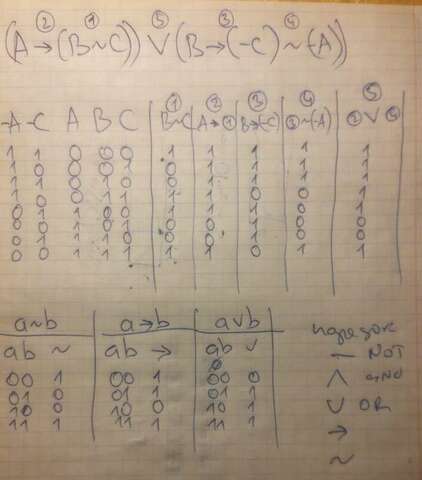 ② ① ⑤ ③ ④
(A→(B~C)) ∨ (B→(-C) ~ (-A))
① ② ③ ④ ⑤
-A -C A B C B~C A→① B→(-C) ③~(-A) ② ∨ ④
1 1 0 0 0 1 1 1 1 1
1 0 0 0 1 0 1 1 1 1
1 1 0 1 0 0 1 1 1 1
1 0 0 1 1 1 1 0 0 1
0 1 1 0 0 1 1 1 0 1
0 0 1 0 1 0 0 1 0 0
0 1 1 1 0 0 0 1 0 0
0 0 1 1 1 1 1 0 1 1
a~b a→b a∨b порядок
ab ~ ab → ab ∨ — NOT
00 1 00 1 00 0 ∧ AND
01 0 01 1 01 1 ∨ OR
10 0 10 0 10 1 →
11 1 11 1 11 1 ~